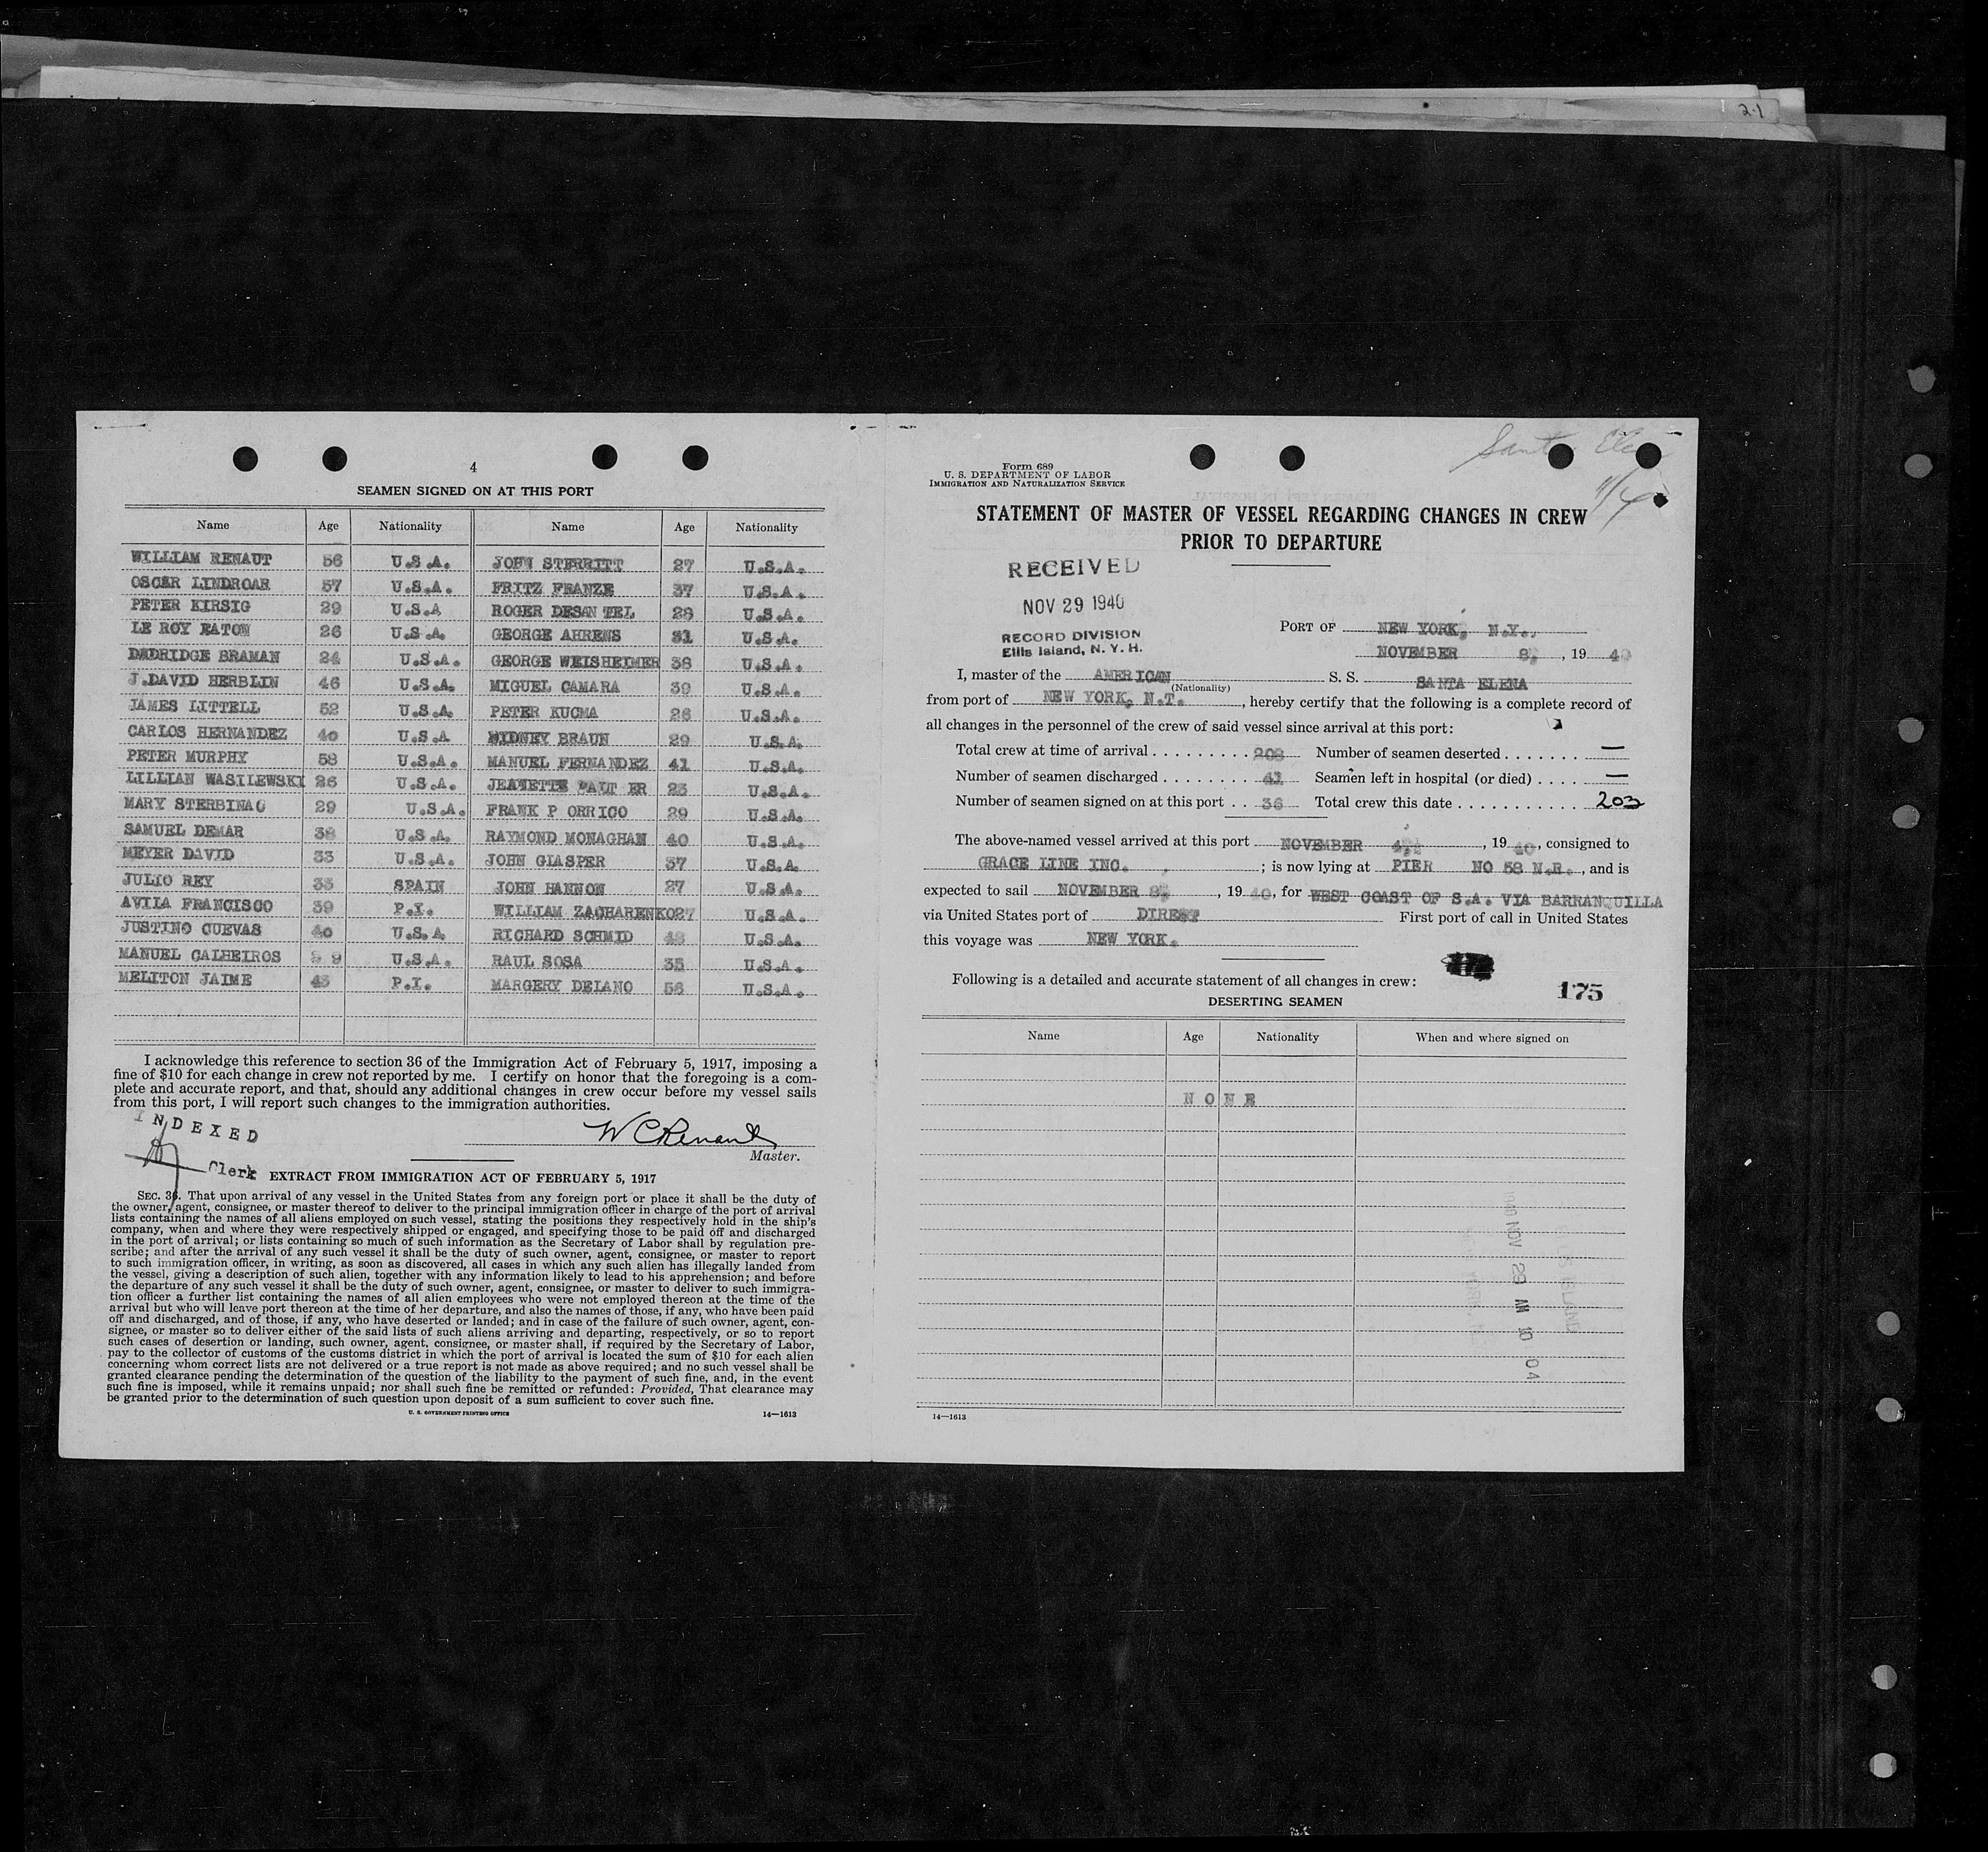 2-1
4
SEAMEN SIGNED ON AT THIS PORT
Name Age Nationality Name Age Nationality
WILLIAM RENAUT 56 U.S.A. JOHN STERRITT 27 U.S.A.
OSCAR LINDROAR 57 U.S.A. FRITZ FRANZE 37 U.S.A.
PETER KIRSIG 29 U.S.A ROGER DESAN TEL 28 U.S.A.
LE ROY EATON 26 U.S.A. GEORGE AHRENS 31 U.S.A.
BRAMAN 24 U.S.A. GEORGE WEISHEIMER 38 U.S.A.
J.DAVID HERBLIN 46 U.S.A. MIGUEL CAMARA 39 U.S.A.
JAMES LITTELL 52 U.S.A. PETER KUCMA 26 U.S.A.
CARLOS HERNANDEZ 40 U.S.A SIDNEY BRAUN 29 U.S.A.
PETER MURPHY 58 U.S.A. MANUEL FERNANDEZ 41 U.S.A.
LILLIAN WASILEWSKI 26 U.S.A. JEANETTE 23 U.S.A.
MARY STERBINAC 29 U.S.A. FRANK P ORRICO 29 U.S.A.
SAMUEL DEMAR 38 U.S.A. RAYMOND MONAGHAN 40 U.S.A.
MEYER DAVID 33 U.S.A. JOHN GLASPER 37 U.S.A.
JULIO REY 33 SPAIN JOHN HANNON 27 U.S.A.
AVILA FRANCISCO 39 P.I. WILLIAM ZACHARENKO27 U.S.A.
JUSTINO CUEVAS 40 U.S.A. RICHARD SCHMID 48 U.S.A.
MANUEL CALHEIROS U.S.A. RAUL SOSA 35 U.S.A.
MELITON JAIME 43 P.I. MARGERY DELANO 56 U.S.A.
I acknowledge this reference to section 36 of the Immigration Act of February 5, 1917, imposing a
fine of $10 for each change in crew not reported by me. I certify on honor that the foregoing is a com-
plete and accurate report, and that, should any additional changes in crew occur before my vessel sails
from this port, I will report such changes to the immigration authorities.
INDEXED
W C Renaut
Master.
Clerk
EXTRACT FROM IMMIGRATION ACT OF FEBRUARY 5, 1917
SEC. 36. That upon arrival of any vessel in the United States from any foreign port or place it shall be the duty of
the owner, agent, consignee, or master thereof to deliver to the principal immigration officer in charge of the port of arrival
lists containing the names of all aliens employed on such vessel, stating the positions they respectively hold in the ship's
company, when and where they were respectively shipped or engaged, and specifying those to be paid off and discharged
in the port of arrival; or lists containing so much of such information as the Secretary of Labor shall by regulation pre-
scribe; and after the arrival of any such vessel it shall be the duty of such owner, agent, consignee, or master to report
to such immigration officer, in writing, as soon as discovered, all cases in which any such alien has illegally landed from
the vessel, giving a description of such alien, together with any information likely to lead to his apprehension; and before
the departure of any such vessel it shall be the duty of such owner, agent, consignee, or master to deliver to such immigra-
tion officer a further list containing the names of all alien employees who were not employed thereon at the time of the
arrival but who will leave port thereon at the time of her departure, and also the names of those, if any, who have been paid
off and discharged, and of those, if any, who have deserted or landed; and in case of the failure of such owner, agent, con-
signee, or master so to deliver either of the said lists of such aliens arriving and departing, respectively, or so to report
such cases of desertion or landing, such owner, agent, consignee, or master shall, if required by the Secretary of Labor,
pay to the collector of customs of the customs district in which the port of arrival is located the sum of $10 for each alien
concerning whom correct lists are not delivered or a true report is not made as above required; and no such vessel shall be
granted clearance pending the determination of the question of the liability to the payment of such fine, and, in the event
such fine is imposed, while it remains unpaid; nor shall such fine be remitted or refunded: Provided, That clearance may
be granted prior to the determination of such question upon deposit of a sum sufficient to cover such fine.
U. S. GOVERNMENT PRINTING OFFICE 14—1613
Form 689
U. S. DEPARTMENT OF LABOR
IMMIGRATION AND NATURALIZATION SERVICE
11/4
STATEMENT OF MASTER OF VESSEL REGARDING CHANGES IN CREW
PRIOR TO DEPARTURE
RECEIVED
NOV 29 1940
RECORD DIVISION
Ellis Island, N. Y. H.
PORT OF NEW YORK, N.Y.
NOVEMBER 8, , 19 40
I, master of the AMERICAN S. S. SANTA ELENA
(Nationality)
from port of NEW YORK, N.Y. , hereby certify that the following is a complete record of
all changes in the personnel of the crew of said vessel since arrival at this port:
Total crew at time of arrival . . . . . . . . . 208 Number of seamen deserted . . . . . . . —
Number of seamen discharged . . . . . . . . 41 Seamen left in hospital (or died) . . . . —
Number of seamen signed on at this port . . 36 Total crew this date . . . . . . . . . . . . 203
The above-named vessel arrived at this port NOVEMBER 4, , 19 40, consigned to
GRACE LINE INC. ; is now lying at PIER NO 58 N.R. , and is
expected to sail NOVEMBER 8, , 19 40, for WEST COAST OF S.A. VIA BARRANQUILLA
via United States port of DIREST First port of call in United States
this voyage was NEW YORK.
Following is a detailed and accurate statement of all changes in crew:
175
DESERTING SEAMEN
Name Age Nationality When and where signed on
NONE
1940 NOV 29 AM 10 04
14—1613